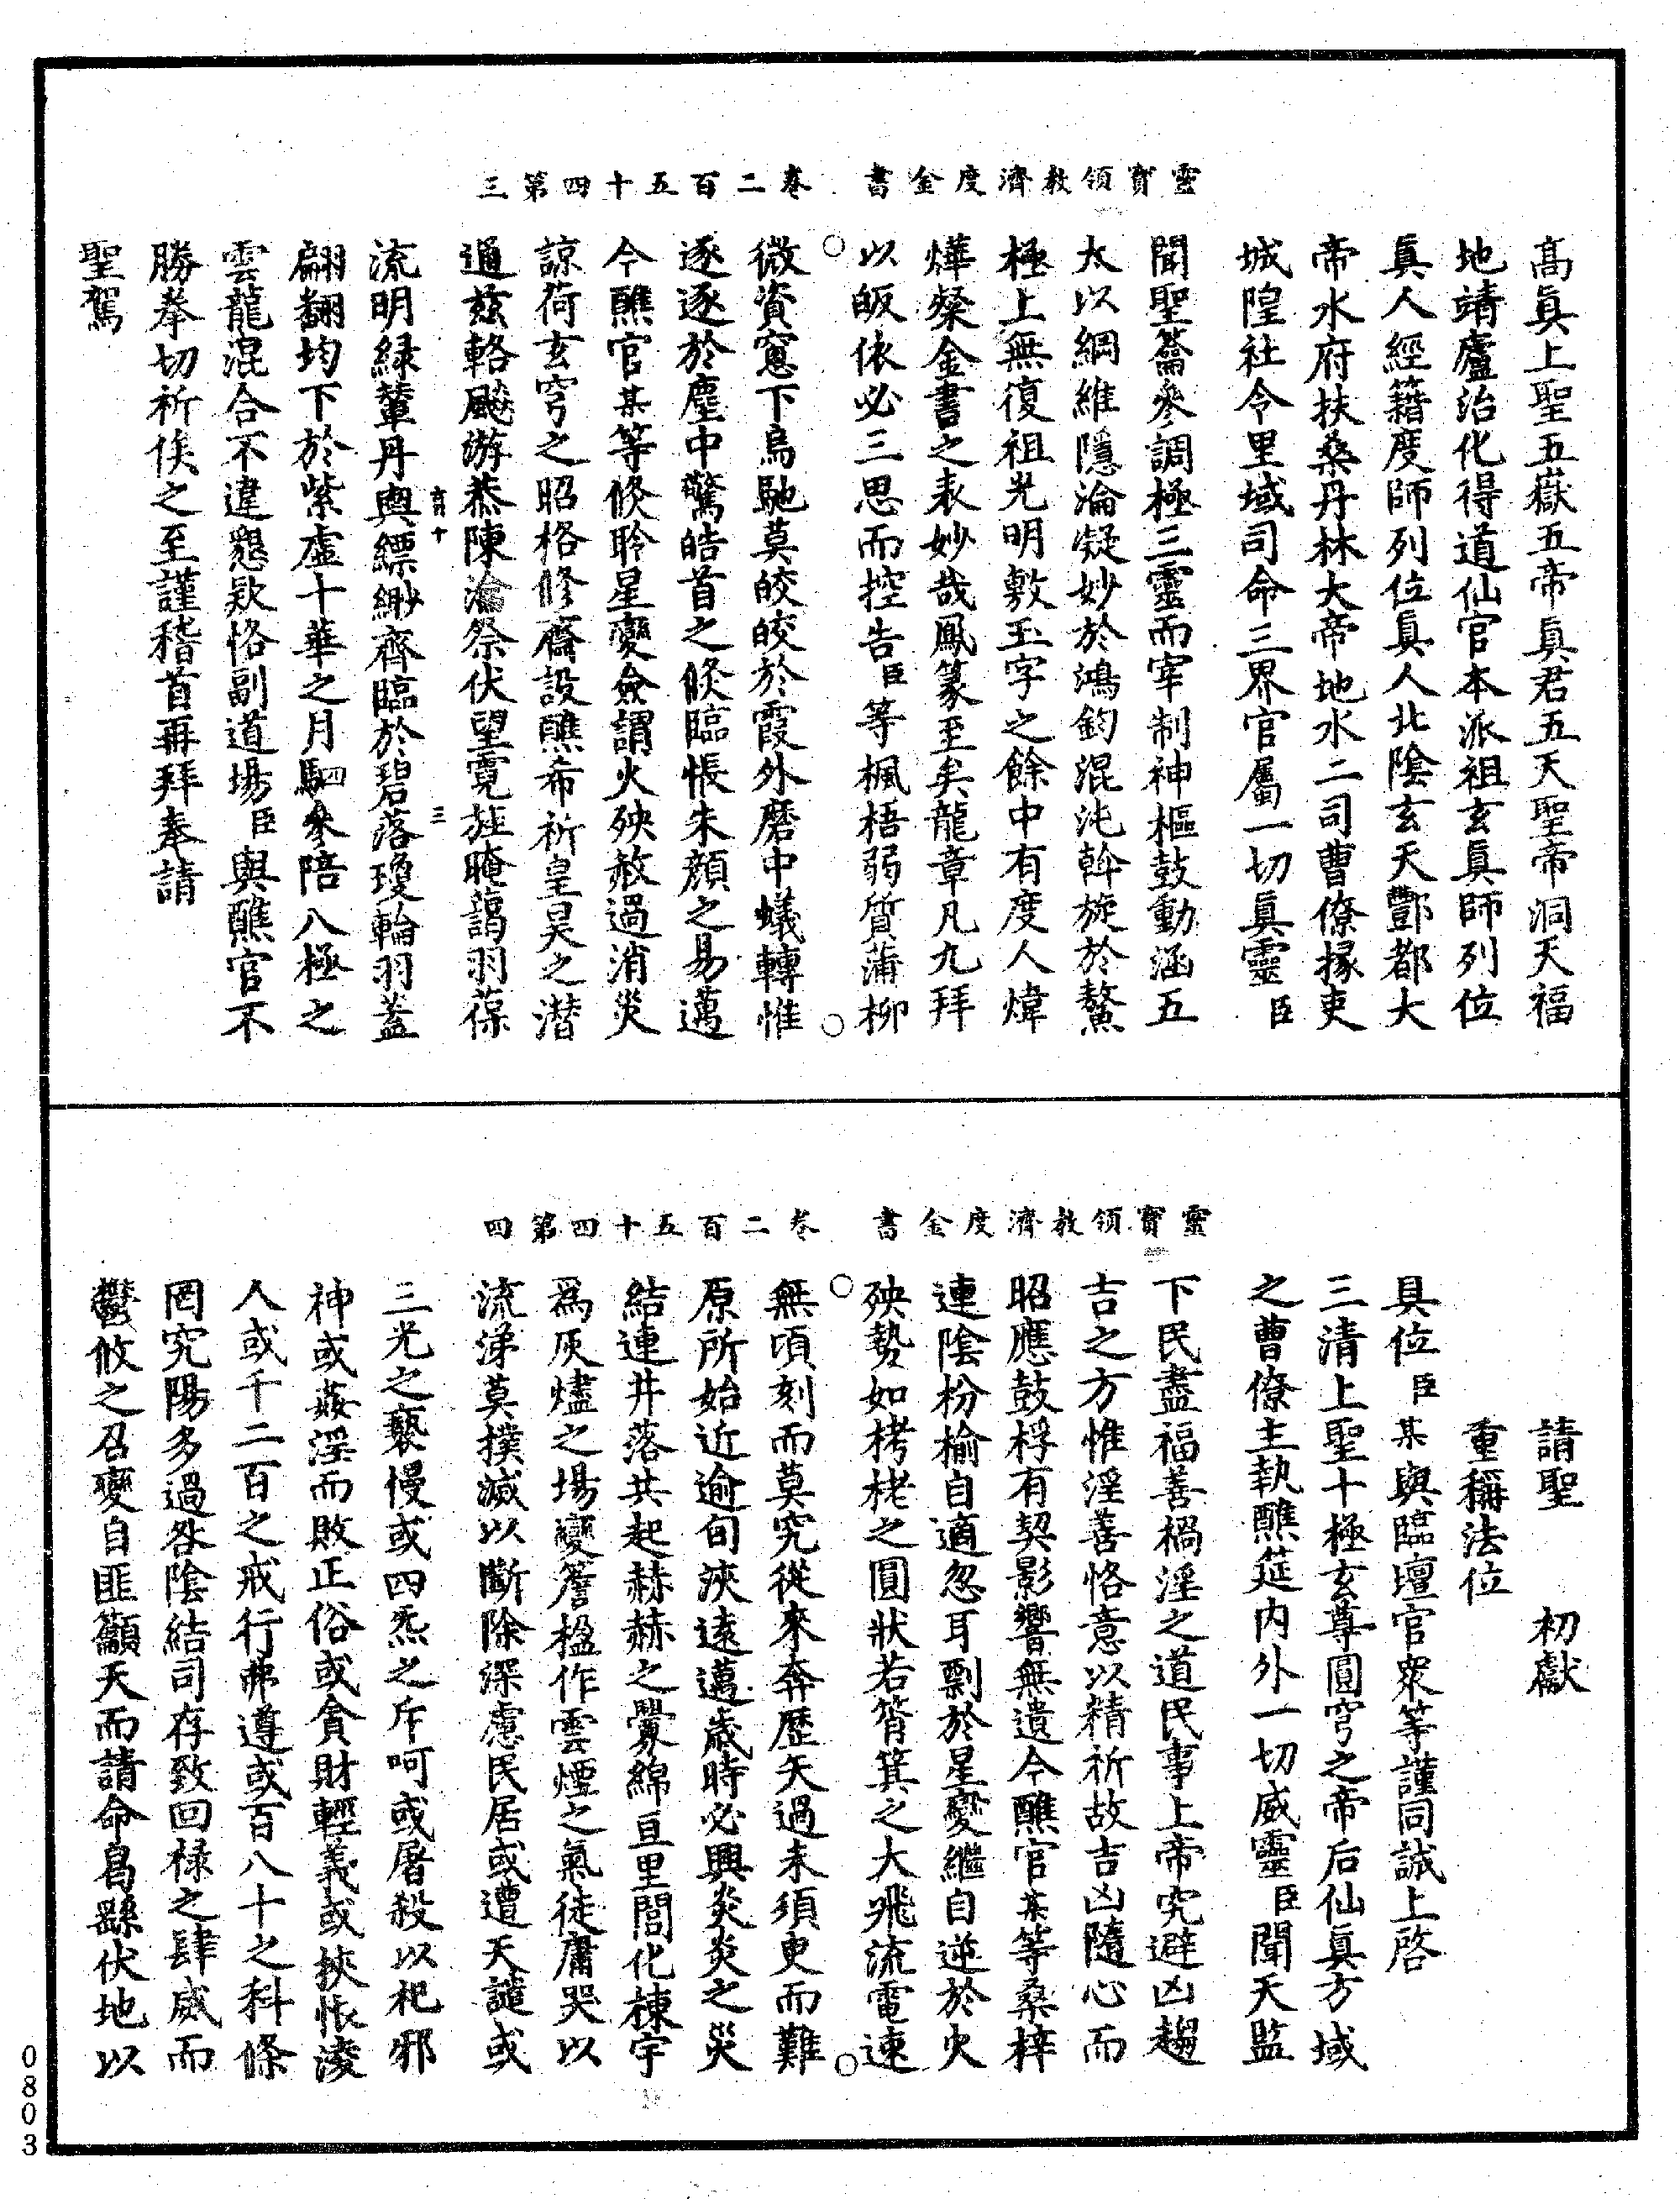 靈寶領教濟度金書 卷二百五十四第三
高眞上聖五嶽五帝眞君五天聖帝洞天福
地靖廬治化得道仙官本派祖玄眞師列位
眞人經籍度師列位眞人北陰玄天酆都大
帝水府扶桑丹林大帝地水二司曹僚掾吏
城隍社令里域司命三界官屬一切眞靈臣
聞聖籥參調極三靈而宰制神樞鼓動涵五
太以綱維隱淪凝妙於鴻鈞混沌斡旋於鰲
極上無復祖光明敷玉字之餘中有度人煒
燁粲金書之表妙哉鳳篆至矣龍章凡九拜
以皈依必三思而控告臣等楓梧弱質蒲柳
微資窻下烏馳莫皎皎於霞外磨中蟻轉惟
逐逐於塵中驚皓首之倏臨悵朱顏之易邁
今醮官某等倏聆星變僉謂火殃赦過消災
諒荷玄穹之昭格修齋設醮希祈皇昊之潛
通茲輅飈游恭陳瀹祭伏望霓旌晻藹羽葆
流明綠輦丹輿縹緲齊臨於碧落瓊輪羽蓋
翩翻均下於紫虛十華之月駟參陪八極之
雲龍混合不違懇欵恪副道場臣與醮官不
勝拳切祈俟之至謹稽首再拜奉請
聖駕
靈寶領教濟度金書 卷二百五十四第四
請聖 初獻
重稱法位
具位臣某與臨壇官衆等謹同誠上啓
三清上聖十極玄尊圓穹之帝后仙眞方域
之曹僚主執醮筵内外一切威靈臣聞天監
下民盡福善禍淫之道民事上帝究避凶趨
吉之方惟淫善恪意以精祈故吉凶隨心而
昭應鼓桴有契影響無遺今醮官某等桑梓
連陰枌榆自適忽耳剽於星變繼自逆於火
殃勢如栲栳之圓狀若筲箕之大飛流電速
無頃刻而莫究從來奔歷矢過未須臾而難
原所始近逾旬浹遠邁歲時必興炎炎之災
結連井落共起赫赫之釁綿亘里閭化棟宇
爲灰燼之場變簷楹作雲煙之氣徒庸哭以
流涕莫撲滅以斷除深慮民居或遭天譴或
三光之褻慢或四炁之斥呵或屠殺以祀邪
神或姦淫而敗正俗或貪財輕義或挾恨淩
人或千二百之戒行弗遵或百八十之科條
罔究陽多過咎陰結司存致回祿之肆威而
鬱攸之召變自匪籲天而請命曷繇伏地以
0803